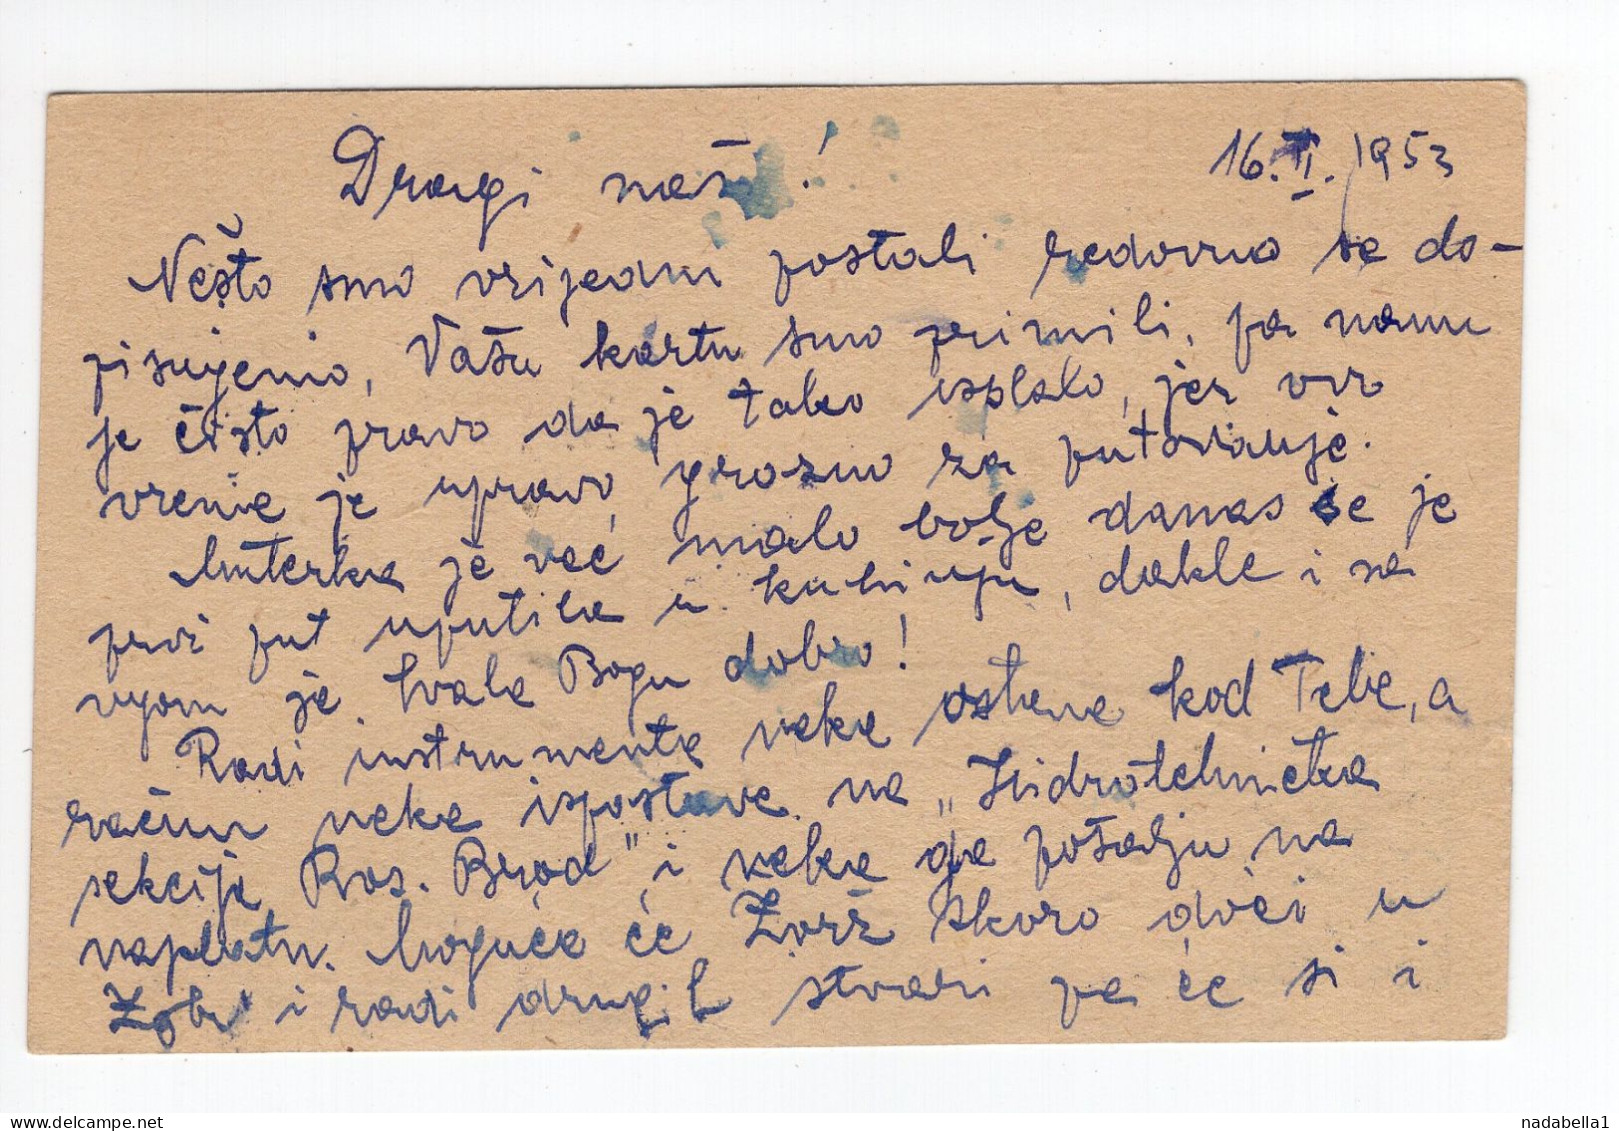 16. II. 1953
Dragi naši!
Nešto smo vrijedni postali redovno se do-
pisujemo, Vašu kartu smo primili, pa nam
je čisto pravo da je tako ispalo, jer ovo
vreme je upravo grozno za putovanje.
Muterka je već malo bolje danas se je
prvi put uputila u kuhinju, dakle i sa
njom je hvala Bogu dobro!
Radi instrumenta neka ostane kod Tebe, a
račun neka ispostave na „Hidrotehnička
sekcija Bos. Brod" i neka ga pošalju na
naplatu. Moguće će Žorž skoro doći u
Zgb i radi drugih stvari pa će si i
nadabella1